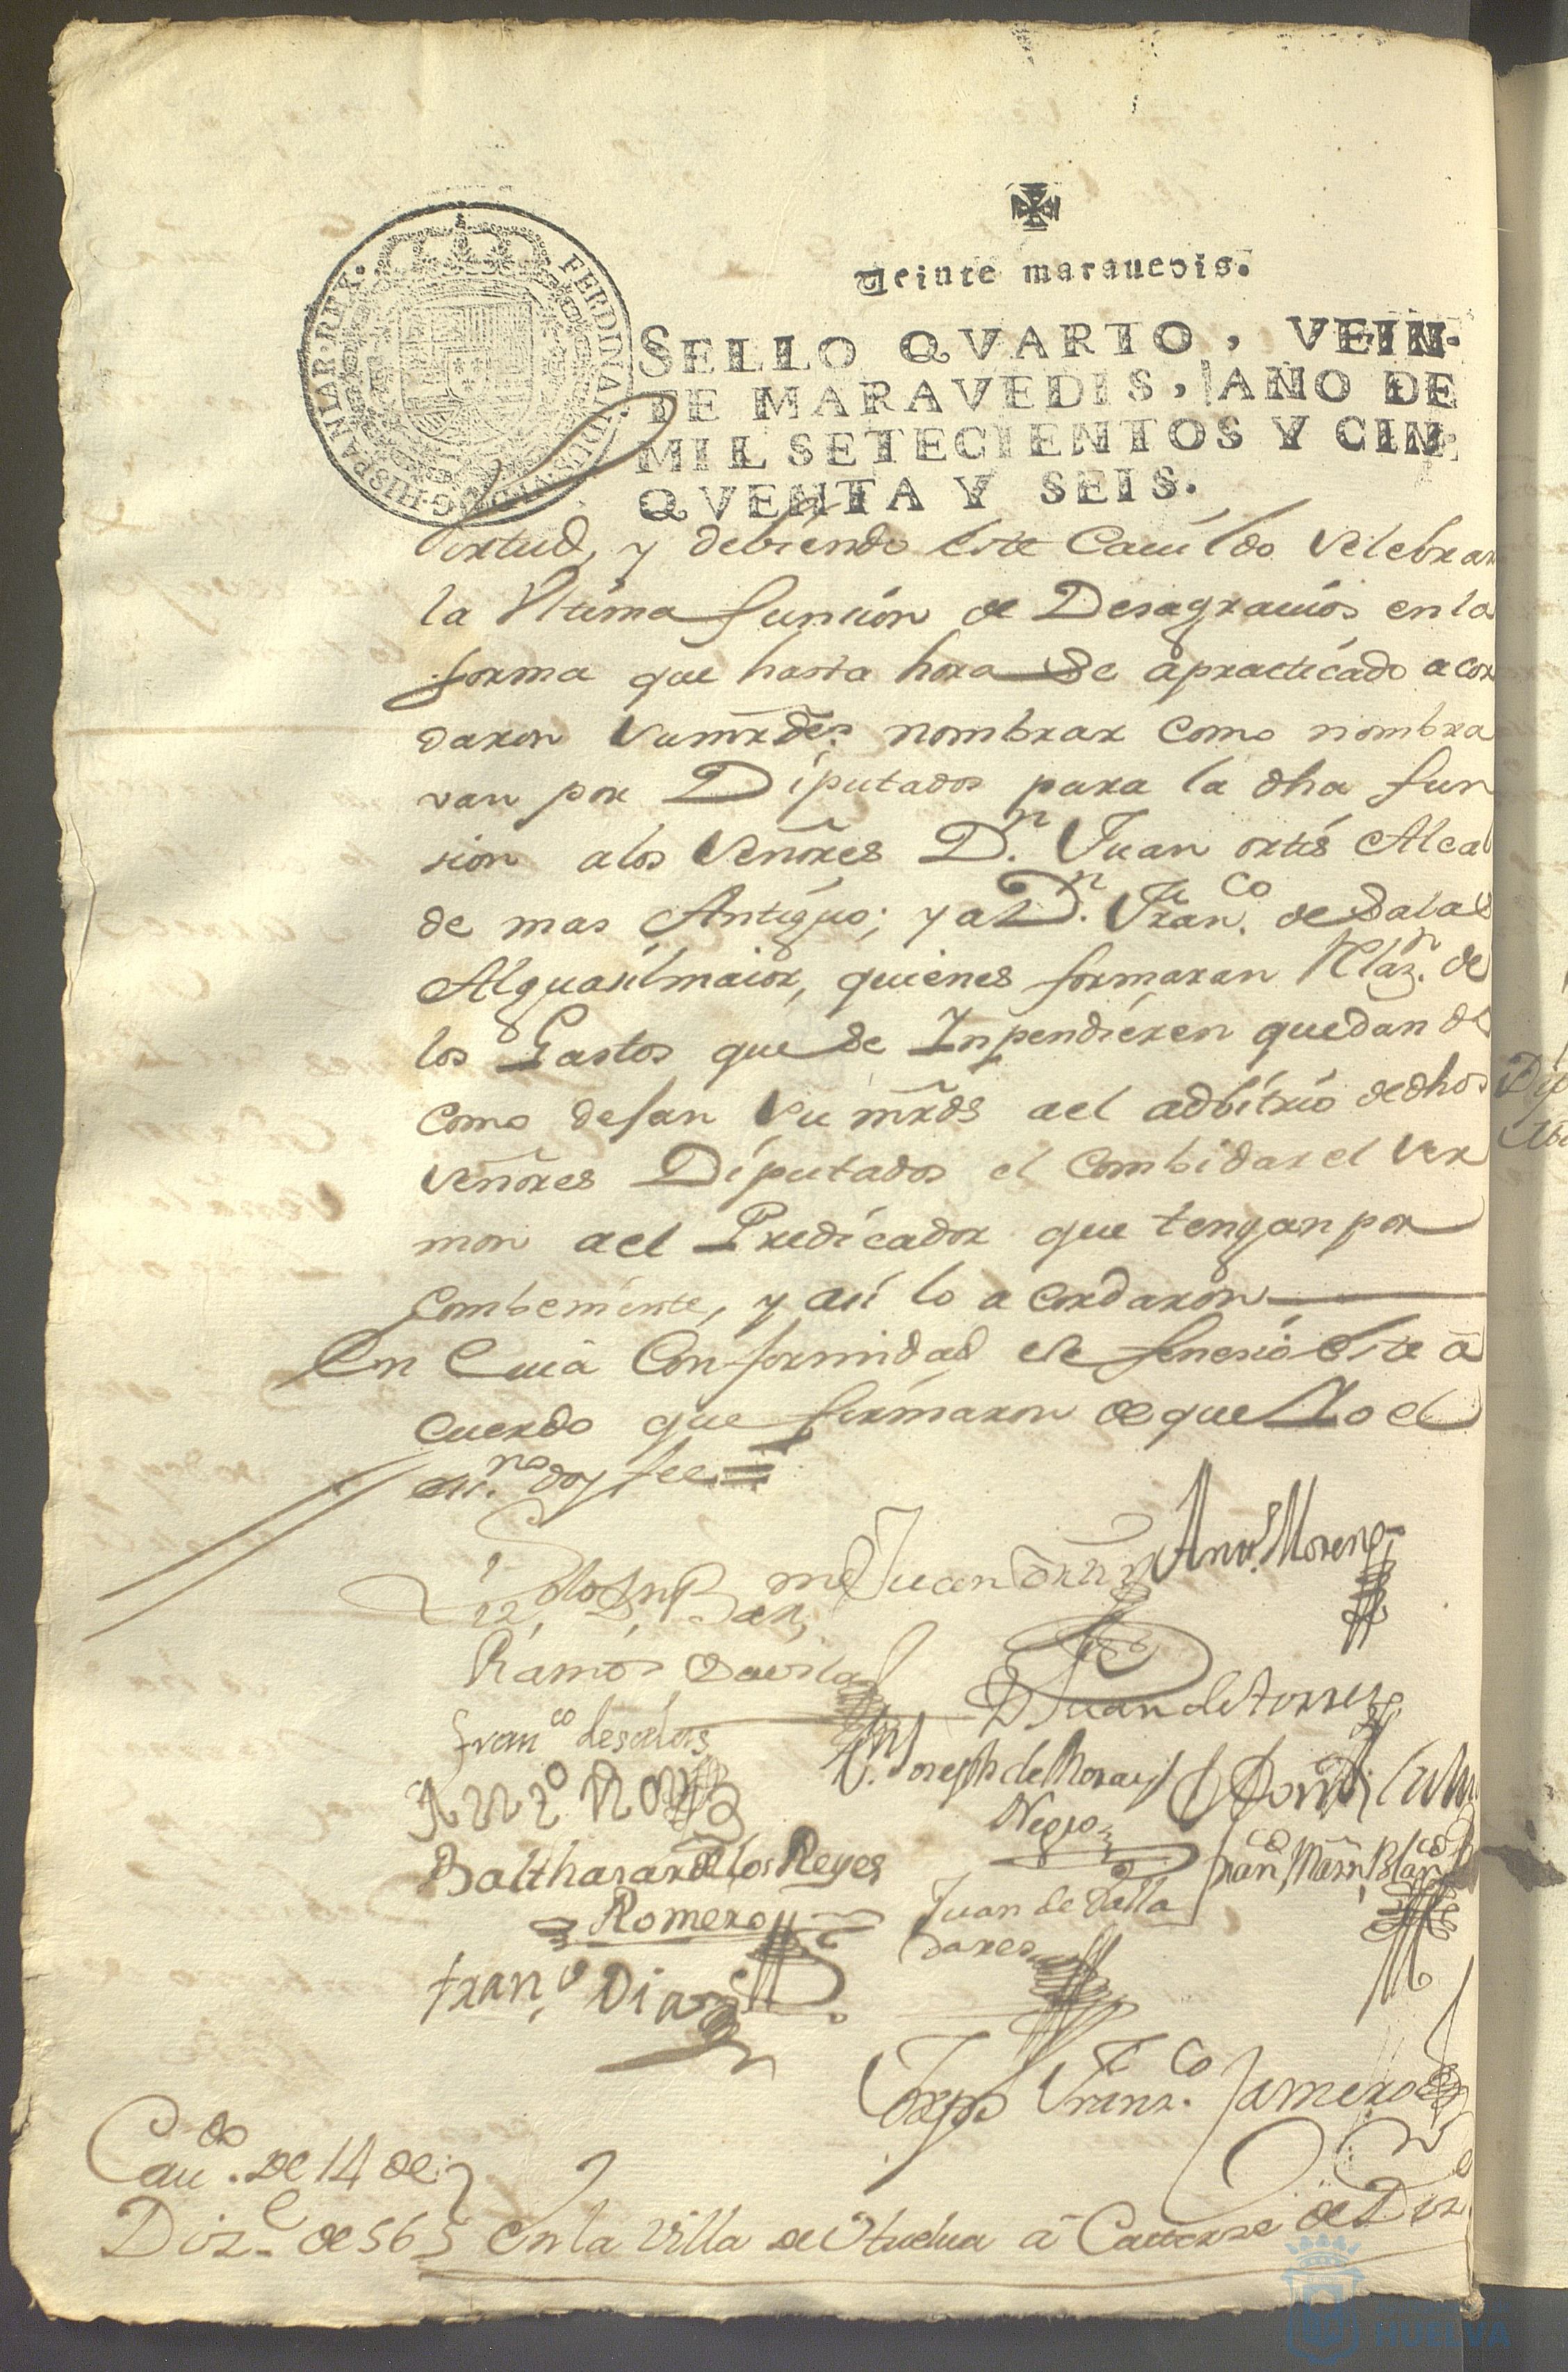 Veinte marauedis.
SELLO QVARTO, VEIN-
TE MARAVEDIS, AÑO DE
MIL SETECIENTOS Y CIN-
QVENTA Y SEIS.
FERDINANDUS VI D G HISPANIAR REX
Virtud, y debiendo este Cauildo Selebrar
la Vltima funcion de Desagrauios en la
forma que hasta hora Se a practicado acor
daron Sumrdes. nombrar como nombra
van por Diputados para la dha fun
sion a los Señores Dn. Juan ortis Alcal
de mas Antiguo; y a Dn. Franco. de Salas
Alguasilmaior, quienes formaran Rlazn. de
los Gastos que Se Inpendieren quedan do
como desan Su mrds ael adbitrio de dhos
Señores Diputados el combidar el Ser
mon ael Predicador que tengan por
combeniente, y asi lo acordaron
En Cuia Conformidad se fenesio este a
cuerdo que firmaron de que Yo el
ess.no doy fee =
Juan Ortiz
Antt. Moreno
Ramos Davila
D Juan de Torres
Franco de salas
Joseph de Mora y
Negro
Balthasar de los Reyes
Romero
Juan de Valla
dares
Franco Martn Blanco
Fran.o Diaz
Joseph Franco. Jamero
Caudo. de 14 de
Dize. de 56
En la Villa de Huelua a Catorze de Dize
HUELVA